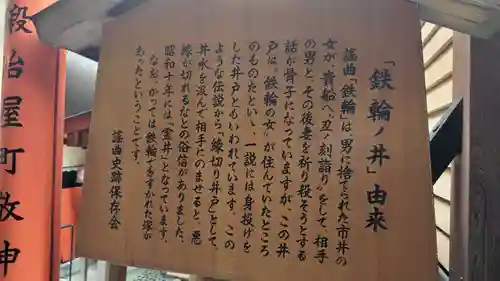 「鉄輪ノ井」由来
謡曲「鉄輪」は、男に捨てられた市井の
女が、貴船へ"丑ノ刻詣り"をして、相手
の男と、その後妻を祈り殺そうとする
話が骨子になっていますが、この井
戸は、"鉄輪の女"が住んでいたところ
のものだといい、一説には身投げを
した井戸ともいわれています。この
ような伝説から「縁切り井戸」として、
井水を汲んで相手にのませると、悪
縁が切れるなどの俗信がありました。
昭和十年には、「霊井」となっています。
なお、かつては"鉄輪"でもすかれた塚が
あったということです。
謡曲史跡保存会
段冶屋町敬神